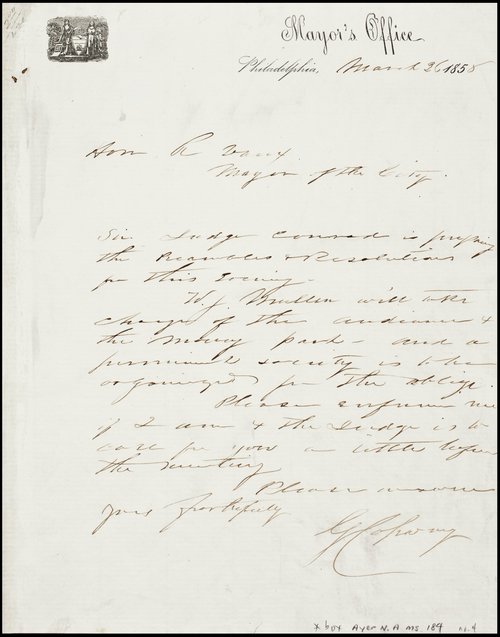 Mayor's Office
Philadelphia, March 26 1858
Hon R Vaux
Mayor of the City.
Sir. Judge Conrad is preparing
the Preambles & Resolutions
for this Evening.
W. J. Mullen will take
charge of the audience &
the money part - and a
permanent society is to be
organized for the
Please inform me
if I am & the Judge is to
call for you a little before
the meeting
Please answer
yours
G Copway
x box Ayer N. A. ms. 184 n. 4